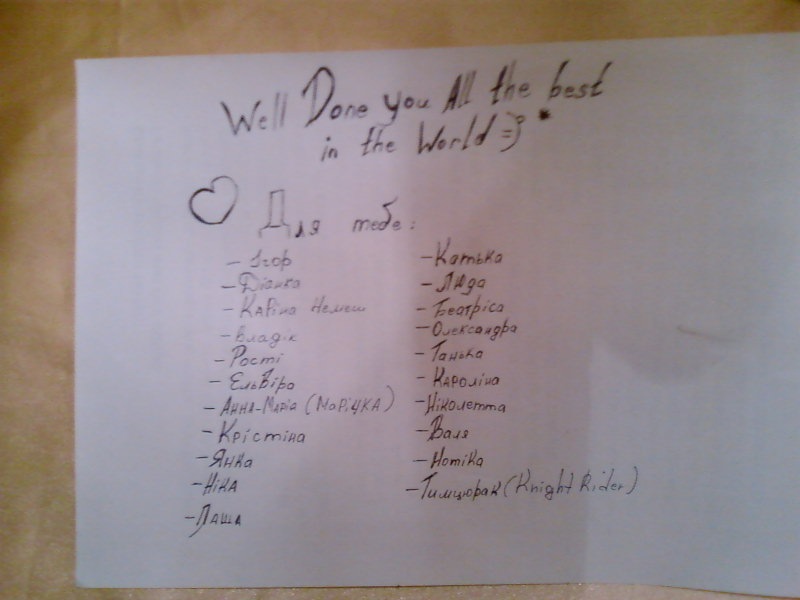 Well Done you All the best
in the World =)
Для тебе:
- Ігор
- Діанка
- Каріна Немеш
- Владік
- Рості
- Ельвіра
- Анна-Марія (Марічка)
- Крістіна
- Янка
- Ніка
- Паша
- Катька
- Люда
- Беатріса
- Олександра
- Танька
- Кароліна
- Ніколетта
- Валя
- Нотіка
- Тимцюрак (Knight Rider)